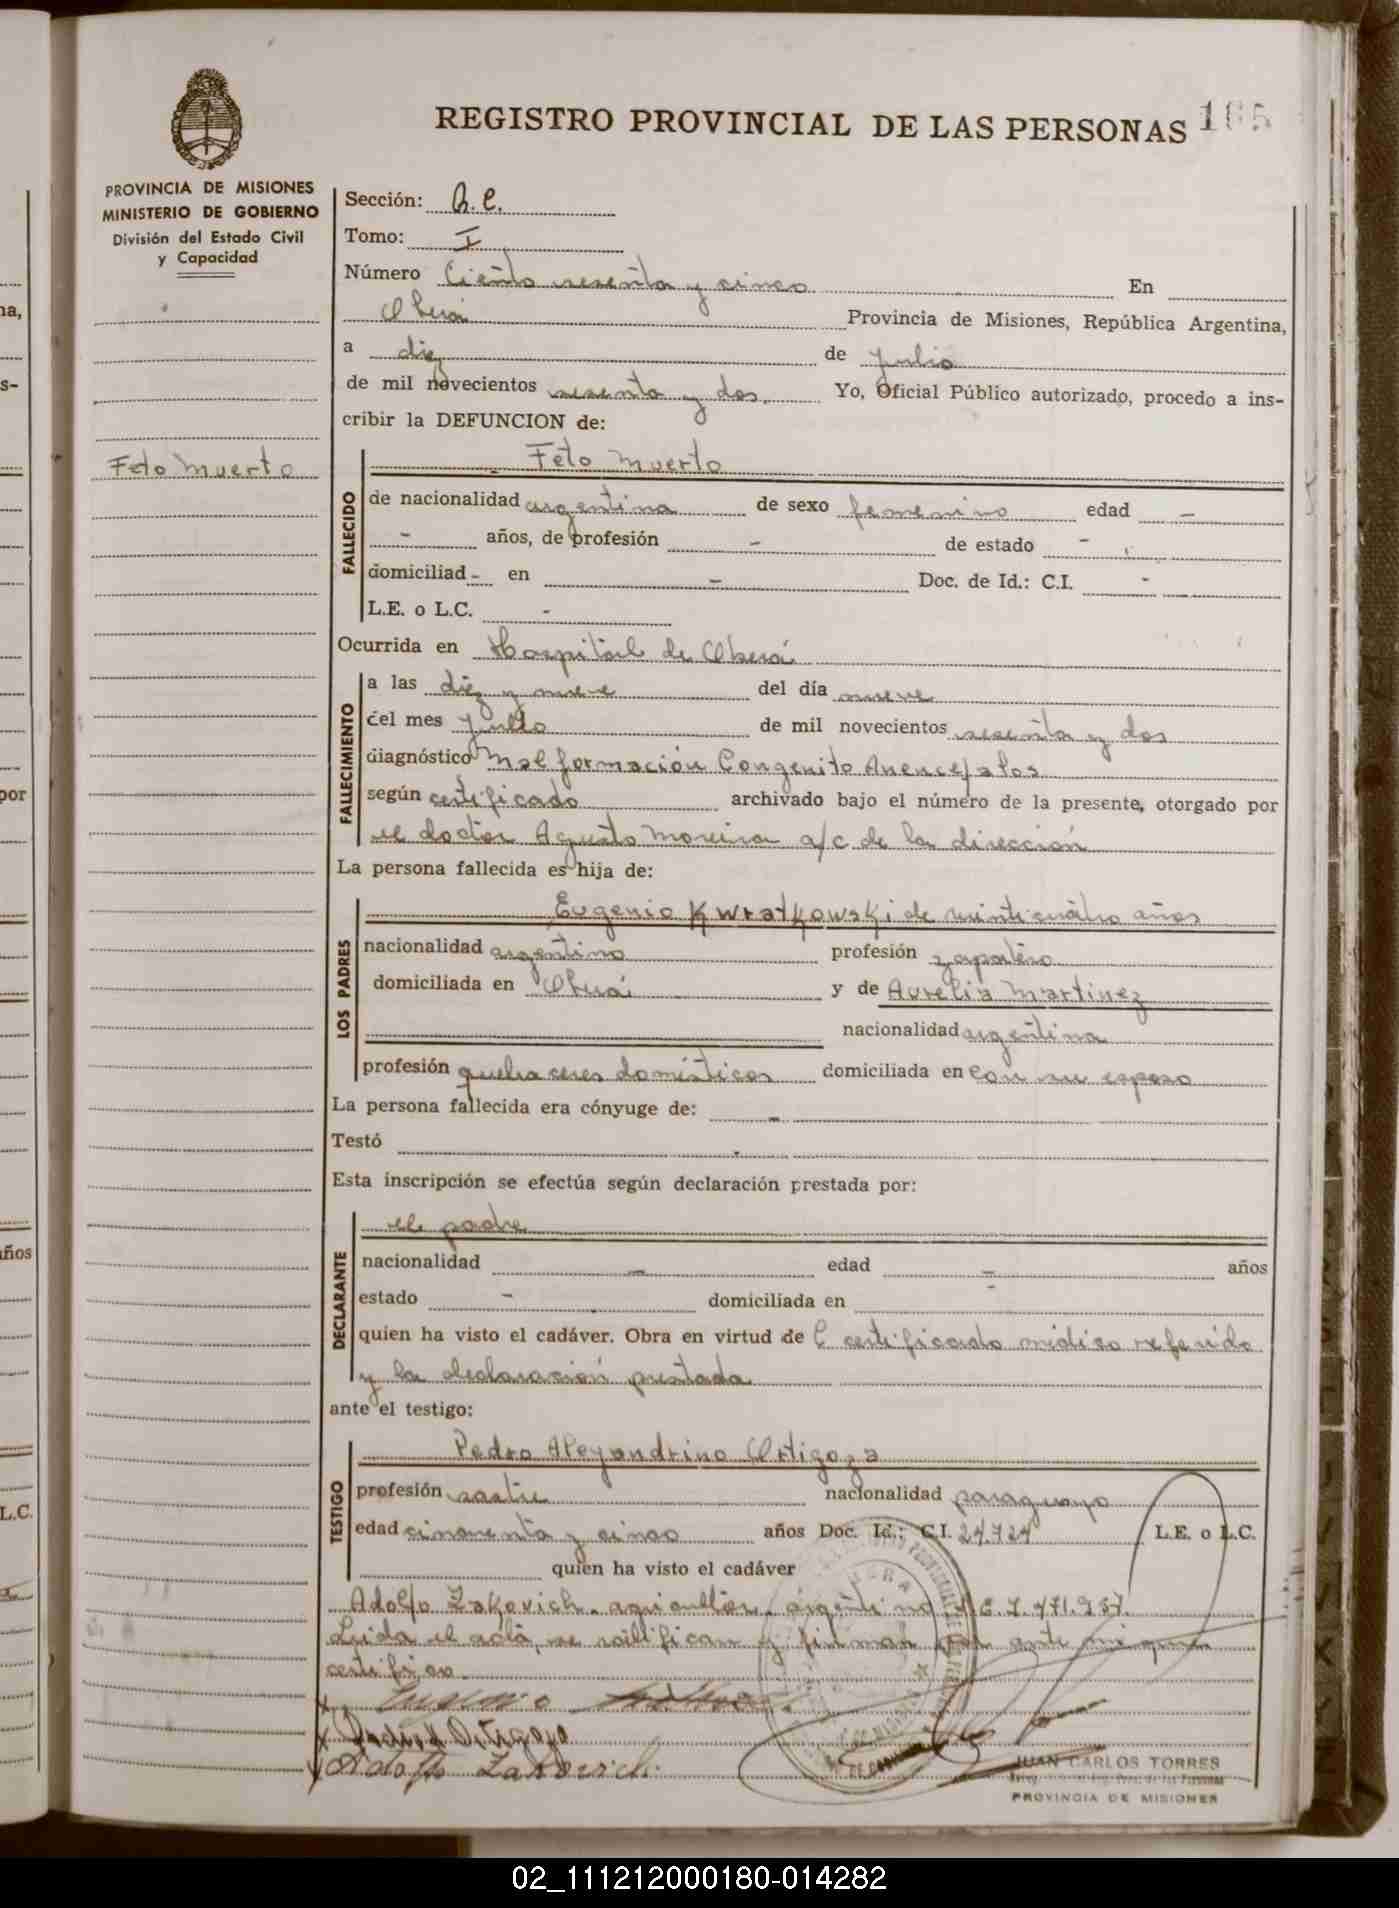 REGISTRO PROVINCIAL DE LAS PERSONAS 165
PROVINCIA DE MISIONES
MINISTERIO DE GOBIERNO
División del Estado Civil
y Capacidad
Feto Muerto
Sección:
Tomo: I
Número Ciento sesenta y cinco En
Oberá Provincia de Misiones, República Argentina,
a diez de julio
de mil novecientos sesenta y dos. Yo, Oficial Público autorizado, procedo a ins-
cribir la DEFUNCION de:
FALLECIDO
Feto Muerto
de nacionalidad argentina de sexo femenino edad -
- años, de profesión - de estado -
domiciliad- en - Doc. de Id.: C.I. -
L.E. o L.C. -
Ocurrida en Hospital de Oberá
FALLECIMIENTO
a las diez y nueve del día nueve
del mes julio de mil novecientos sesenta y dos
diagnóstico Malformación Congenito Anencefalos
según certificado archivado bajo el número de la presente, otorgado por
el doctor Agusto Moreira a/c de la dirección
La persona fallecida es hija de:
LOS PADRES
Eugenio Kwiatkowski de veinticuatro años
nacionalidad argentino profesión zapatero
domiciliada en Oberá y de Aurelia Martinez
nacionalidad argentina
profesión quehaceres domésticos domiciliada en con su esposo
La persona fallecida era cónyuge de: -
Testó -
Esta inscripción se efectúa según declaración prestada por:
DECLARANTE
el padre
nacionalidad - edad - años
estado - domiciliada en -
quien ha visto el cadáver. Obra en virtud de l certificado médico referido
y la declaración prestada
ante el testigo:
TESTIGO
Pedro Alejandrino Ortigoza
profesión sastre nacionalidad paraguayo
edad cincuenta y cinco años Doc. Id.: C.I. 24.724 L.E. o L.C.
quien ha visto el cadáver
Adolfo Zakovich. agricultor. argentino
Leida el acta, se ratifican y firman por ante mi que
certifico.
Eugenio
Pedro A Ortigoza
Adolfo Zakovich
JUAN CARLOS TORRES
PROVINCIA DE MISIONES
02_111212000180-014282